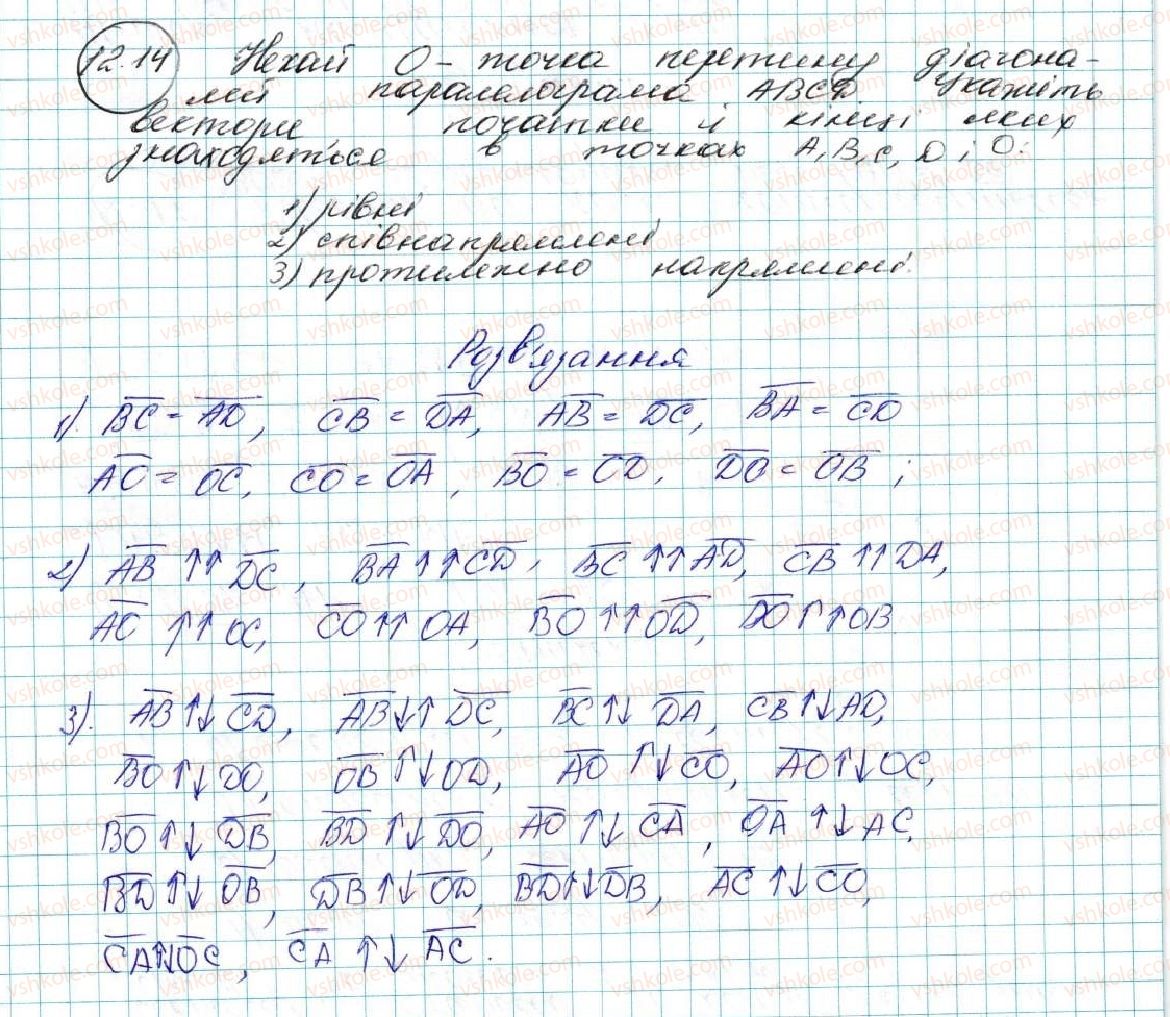 12.14 Нехай О – точка перетину діагона-
лей паралелограма ABCD Укажіть
вектори початки й кінці яких
знаходяться в точках A, B, C, D і O:
1) рівні
2) співнапрямлені
3) протилежно напрямлені.
Розв'язання
1). B̅C̅ = A̅D̅, C̅B̅ = D̅A̅, A̅B̅ = D̅C̅, B̅A̅ = C̅D̅
A̅O̅ = O̅C̅, C̅O̅ = O̅A̅, B̅O̅ = O̅D̅, D̅O̅ = O̅B̅;
2) A̅B̅ ↑↑ D̅C̅, B̅A̅ ↑↑ C̅D̅, B̅C̅ ↑↑ A̅D̅, C̅B̅ ↑↑ DA,
A̅O̅ ↑↑ OC, C̅O̅ ↑↑ OA, B̅O̅ ↑↑ O̅D̅, D̅O̅ ↑↑ OB.
3). A̅B̅ ↑↓ C̅D̅, A̅B̅ ↓↑ D̅C̅, B̅C̅ ↑↓ D̅A̅, C̅B̅ ↑↓ AD,
B̅O̅ ↑↓ DO, O̅B̅ ↑↓ OD, A̅O̅ ↑↓ C̅O̅, A̅O̅ ↑↓ OC,
B̅O̅ ↑↓ D̅B̅, B̅D̅ ↑↓ D̅O̅, A̅O̅ ↑↓ C̅A̅, O̅A̅ ↑↓ AC,
B̅D̅ ↑↓ O̅B̅, D̅B̅ ↑↓ O̅D̅, B̅D̅ ↑↓ D̅B̅, A̅C̅ ↑↓ C̅O̅,
C̅A̅ ↑↓ O̅C̅, C̅A̅ ↑↓ A̅C̅.
vshkole.com